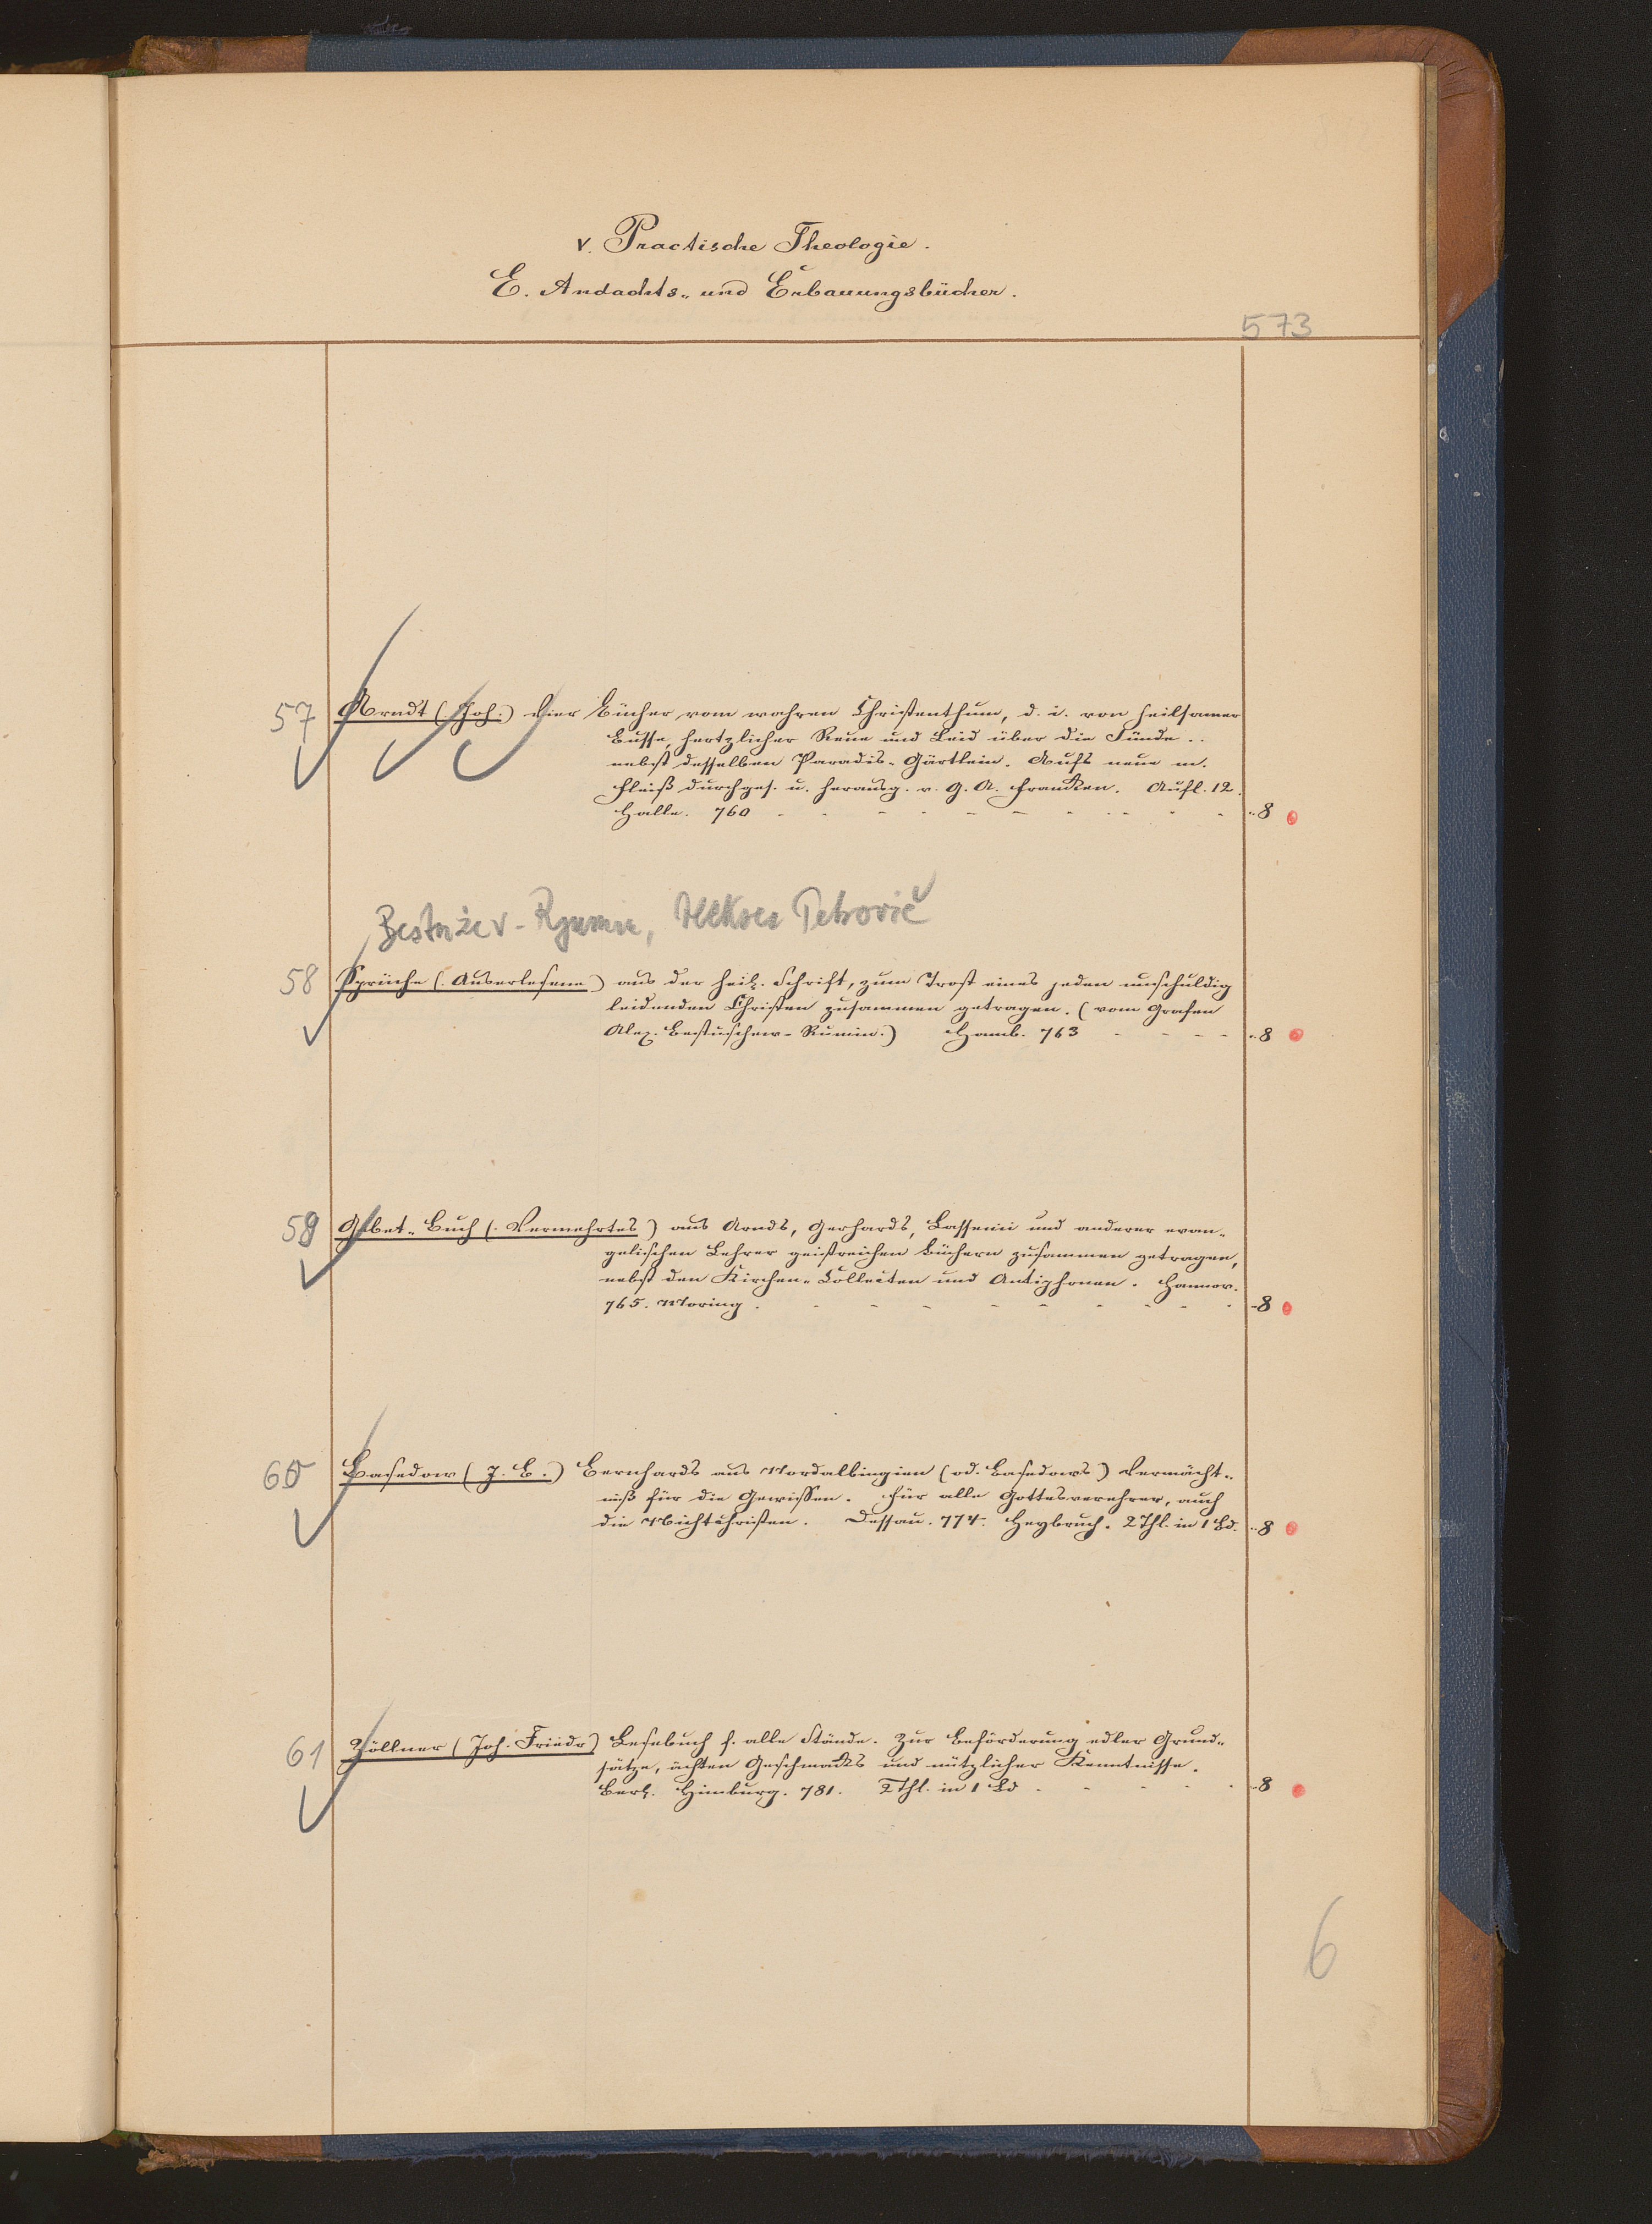 V. Practische Theologie.
E. Andachts- und Erbauungsbücher.
573
57 Arndt (Joh.) Vier Bücher vom wahren Christenthum, d. i. von heilsamer
Busse, hertzlicher Reue und Leid über die Sünde..
nebst desselben Paradis-Gärtlein. Aufs neue m.
Fleiß durchges. u. herausg. v. G. A. Francken. Aufl. 12.
Halle. 760 - - - - - - - - - - 8
Bestužev-Rjumin, Aleksej Petrovič
58 Sprüche (Auserlesene) aus der heil. Schrift, zum Trost eines jeden unschuldig
leidenden Christen zusammen getragen. (vom Grafen
Alex. Bestuschew-Rumin.) Hamb. 763 - - - - 8
59 Gebet-Buch (Vermehrtes) aus Arnds, Gerhards, Lassenii und anderer evan-
gelischen Lehrer geistreichen Büchern zusammen getragen,
nebst den Kirchen-Collecten und Antiphonen. Hannov.
765. Moring. - - - - - - - - - 8
60 Basedow (J. B.) Bernhards aus Nordalbingien (od. Basedows) Vermächt-
niß für die Gewissen. Für alle Gottesverehrer, auch
die Nichtchristen. Dessau. 774. Heybruch. 2 Thl. in 1 Bd. 8
61 Zöllner (Joh. Friedr) Lesebuch f. alle Stände. Zur Beförderung edler Grund-
sätze, ächten Geschmacks und nützlicher Kenntnisse.
Berl. Himburg. 781. 2 Thl. in 1 Bd - - - - - 8
6